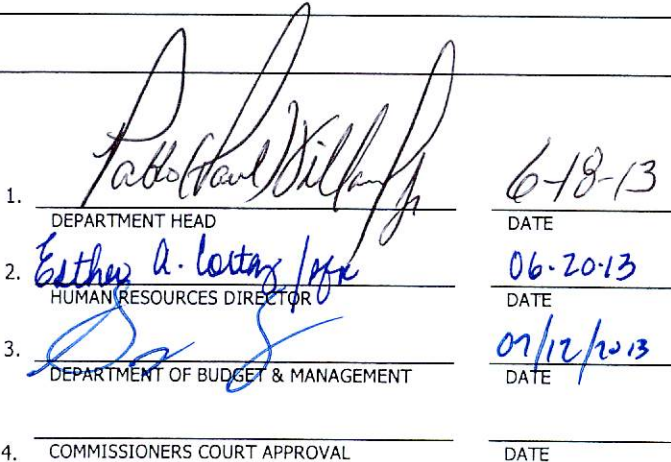 1. Pablo (Paul) Jr 6-18-13
DEPARTMENT HEAD DATE
2. Esther A. Cortez 06-20-13
HUMAN RESOURCES DIRECTOR DATE
3. 07/12/2013
DEPARTMENT OF BUDGET & MANAGEMENT DATE
4. COMMISSIONERS COURT APPROVAL DATE